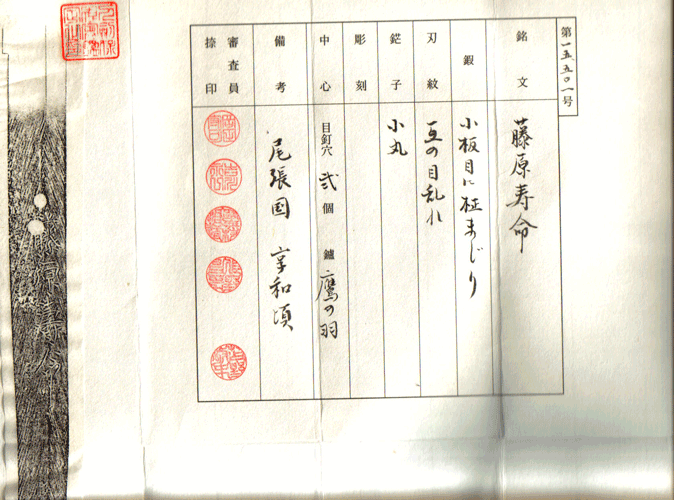 第一五五〇一号
銘文 藤原寿命
鍛 小板目に柾まじり
刃紋 互の目乱れ
鋩子 小丸
彫刻
中心 目釘穴 弐 個 鑢 鷹の羽
備考 尾張国 享和頃
審査員
捺印